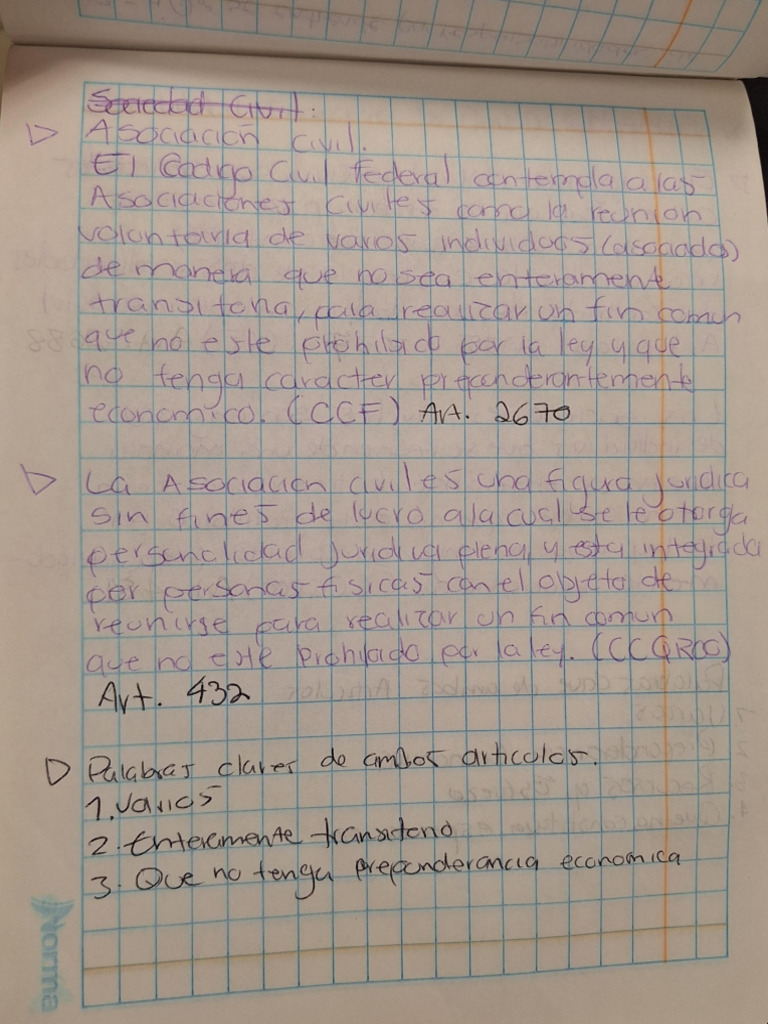 Sociedad Civil:
Asociacion Civil.
El Codigo Civil Federal contempla a las
Asociaciones Civiles como la reunion
voluntaria de varios individuos (asociados)
de manera que no sea enteramente
transitoria, para realizar un fin comun
que no este prohibido por la ley y que
no tenga caracter preponderantemente
economico. (CCF) Art. 2670
La Asociacion Civil es una figura juridica
sin fines de lucro a la cual se le otorga
personalidad juridica plena, y esta integrada
por personas fisicas con el objeto de
reunirse para realizar un fin comun
que no este prohibido por la ley. (CCQROO)
Art. 432
Palabras claves de ambos articulos.
1. Varios
2. Enteramente transitorio
3. Que no tenga preponderancia economica
Norma